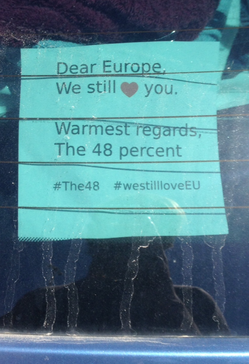 Dear Europe,
We still ❤ you.
Warmest regards,
The 48 percent
#The48 #westillloveEU